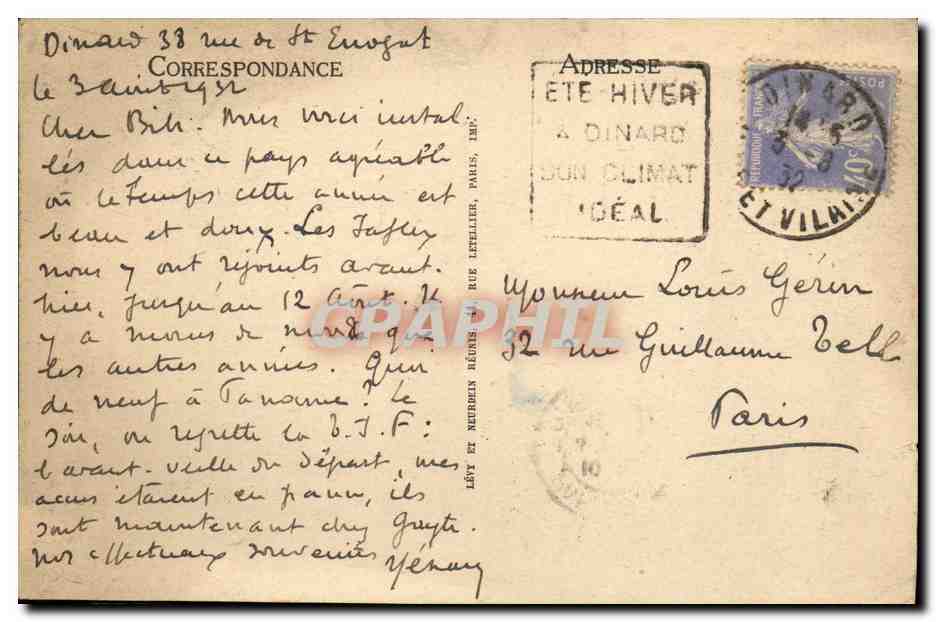 Dinard 38 rue de St Enogat
CORRESPONDANCE
le 3 août 1932
Cher Bib. Nous voici instal
lés dans ce pays agréable
où le temps cette année est
beau et doux. Les
nous y ont rejoints avant-
hier, jusqu'au 12 Août. Il
y a moins de monde que
les autres années. Quoi
de neuf à ? Le
soir, on regrette la T.S.F:
l'avant-veille du départ, mes
accus étaient en panne, ils
sont maintenant chez
Nos affectueux souvenirs
LÉVY ET NEURDEIN RÉUNIS, 44 RUE LETELLIER, PARIS, IMP.
ADRESSE
ETE-HIVER
A DINARD
SON CLIMAT
IDÉAL
DINARD
14 15
3 -8
32
ET VILAINE
REPUBLIQUE FRANC
POSTES
40c
Monsieur Louis Gérin
32 rue Guillaume Tell
Paris
CPAPHIL